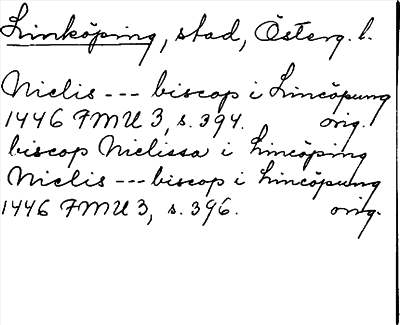 Linköping, stad, Österg. l.
Niclis --- biscop i Lincöpung
1446 FMU 3, s. 394. orig.
biscop Niclissa i Lincöping
Niclis --- biscop i Lincöpung
1446 FMU 3, s. 396. orig.